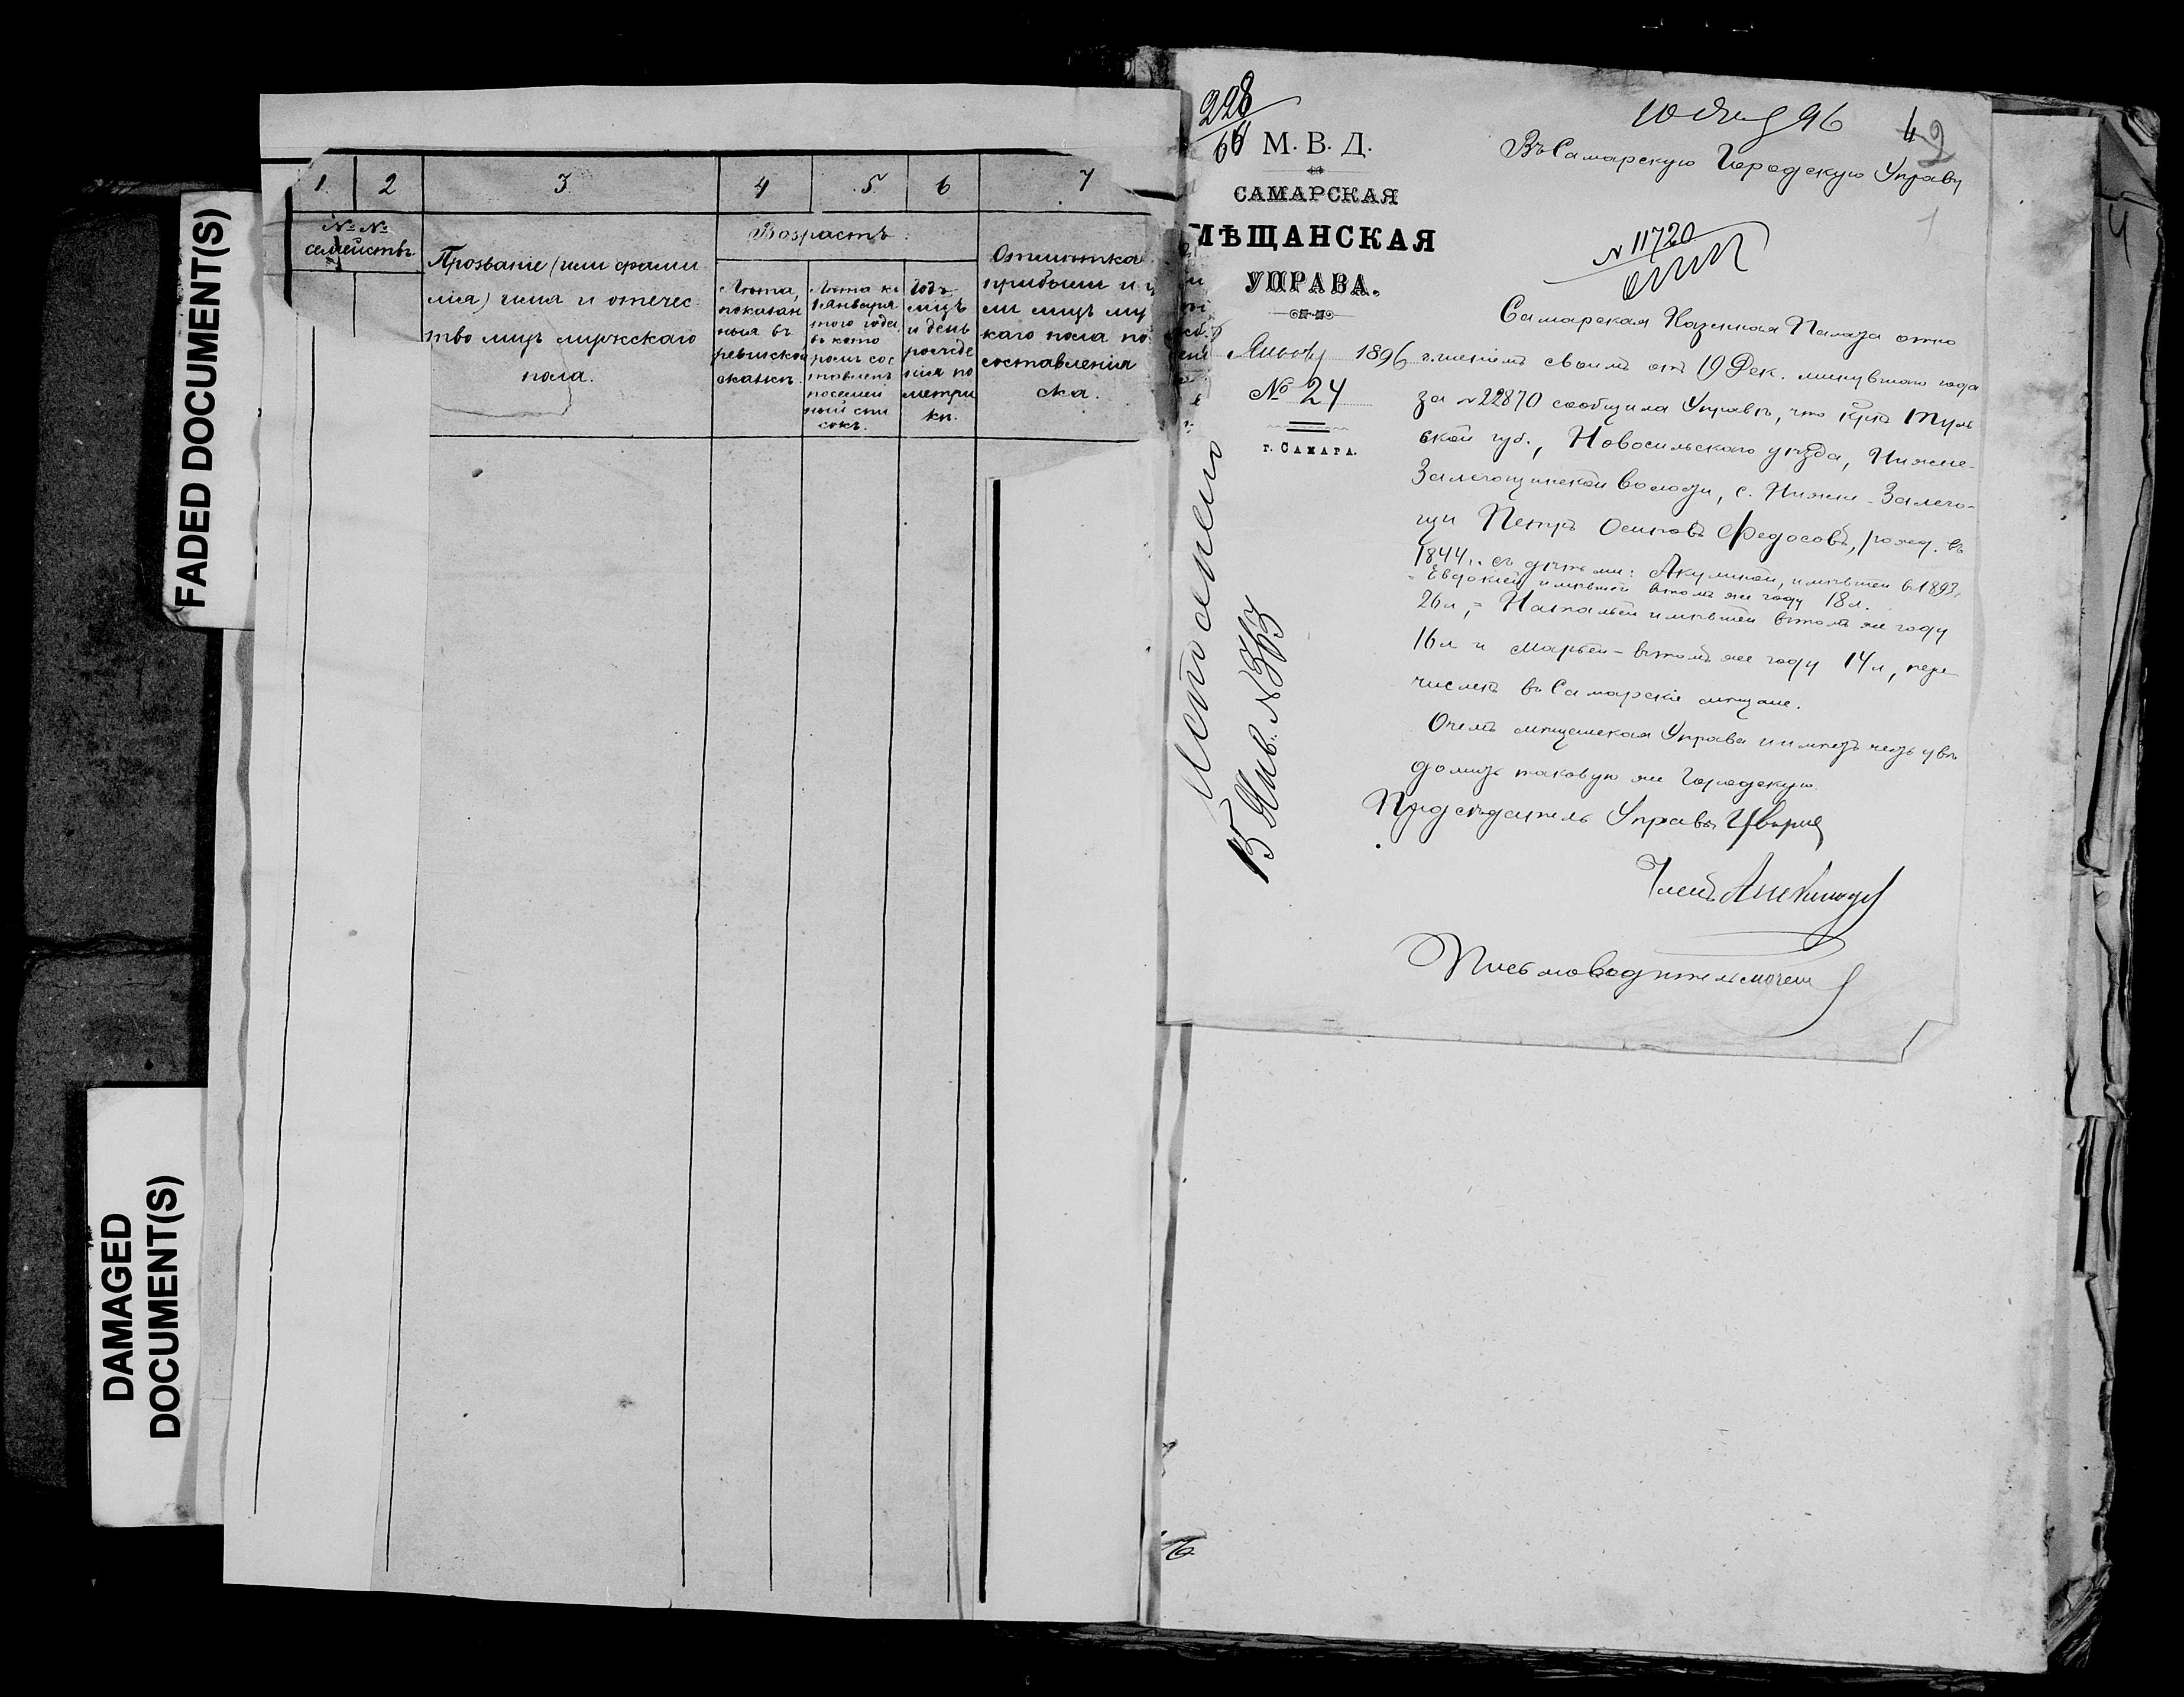 FADED DOCUMENT(S)
DAMAGED
DOCUMENT(S)
1. 2 3 4 5 6 7
№ №
семействъ.
Прозваніе (или фами
лія) имя и отечес
тво лицъ мужскаго
пола.
Возрастъ.
Лѣта,
показан
ныя въ
ревизской
сказкѣ.
Лѣта къ
1 Января
того года,
въ кото
ромъ сос
тавленъ
посемей
ный спи
сокъ.
Годъ
мцъ
и день
рожде
нія по
метри
кѣ.
Отмѣтка
прибыли и у
ли лицъ му
каго пола по
составленія
ска.
228
66
М. В. Д.
САМАРСКАЯ
МѢЩАНСКАЯ
УПРАВА.
Январ 1896 г.
№ 24
г. САМАРА.
Исполнено
15 Янв. №363
10 Янв 96
42
Въ Самарскую Городскую Управу
1
N 11720
Самарская Казенная Палата отно
шеніемъ своимъ отъ 19 Дек. минувшаго года
за №22870 сообщила Управѣ, что крнъ Туль
ской губ., Новосильскаго уѣзда, Нижне-
Залегощинской волости, с. Нижн-Залего-
щи Петръ Осиповъ Федосовъ, рожд. въ
1844 г. съ дѣтьми: Акулиной, имѣвшей в 1893 г.
Евдокіей имѣвшей въ томъ же году 18 л.
26 л, - Натальей имѣвшей въ томъ же году
16 л и Марьей - въ томъ же году 14 л, пере
численъ въ Самарскіе мѣщане.
О чемъ мѣщанская Управа имѣетъ честь увѣ
домить таковую же Городскую.
Предсѣдатель Управы
Членъ
Письмоводитель